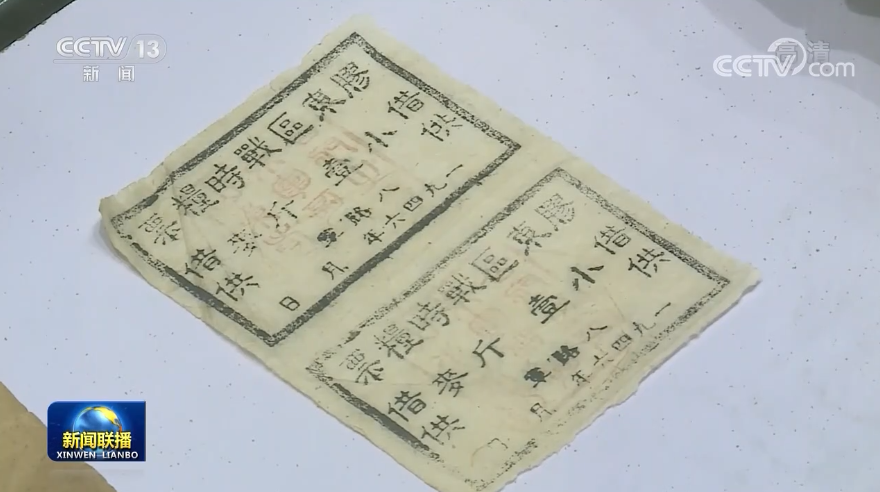 CCTV 13
新闻
高清
CCTV.com
膠東區戰時糧票
借供
小壹斤麥
借供
八路軍
一九四六年 月 日
膠東區戰時糧票
借供
小壹斤麥
借供
八路軍
一九四六年 月
新闻联播
XINWEN LIANBO